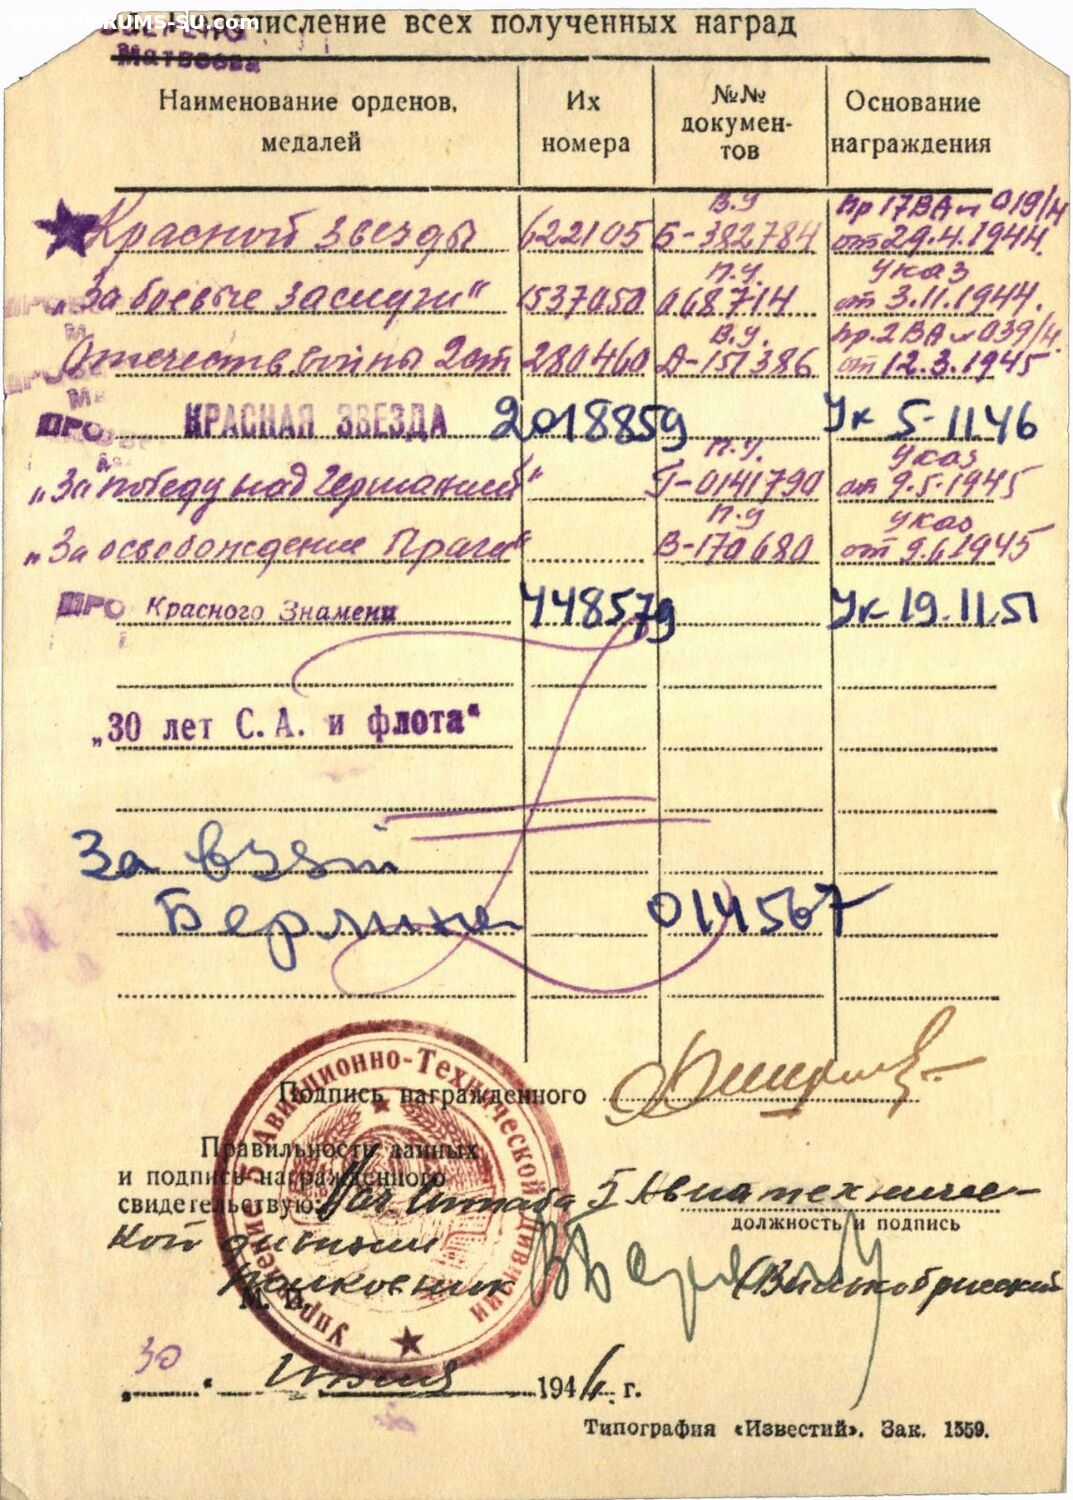 www.FORUMS-SU.com
числение всех полученных наград
Матвеева
Наименование орденов, медалей
Их номера
№№ документов
Основание награждения
Красной звезды 622105 В.У Б-382784 Пр 17ВА № 019/н от 29.4.1944.
"За боевые заслуги" 1537050 П.У. 068714 Указ от 3.11.1944.
Отечеств. войны 2 ст 280460 В.У. А-151386 Пр. 2ВА № 039/н. от 12.3.1945
ПРО КРАСНАЯ ЗВЕЗДА 2018859 Ук 5-11.46
"За победу над Германией" П.У. Г-0141790 Указ от 9.5.1945
"За освобождение Праги" П.У В-170680 Указ от 9.6.1945
ПРО Красного Знамени 448579 Ук 19.11.51
„30 лет С.А. и флота"
За взят
Берлина 014567
Подпись награжденного
Правильность данных
и подпись награжденного
свидетельствую: Нач. штаба 5 Авиатехниче-
должность и подпись
кой дивизии
полковник
М. П.
Управление 5 Авиационно-Технической Дивизии
30 Июня 1946 г.
Типография «Известий». Зак. 1559.